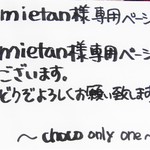 mietan様専用ページ
mietan様専用ペー
ございます。
どうぞよろしくお願い致します
〜choco only one〜